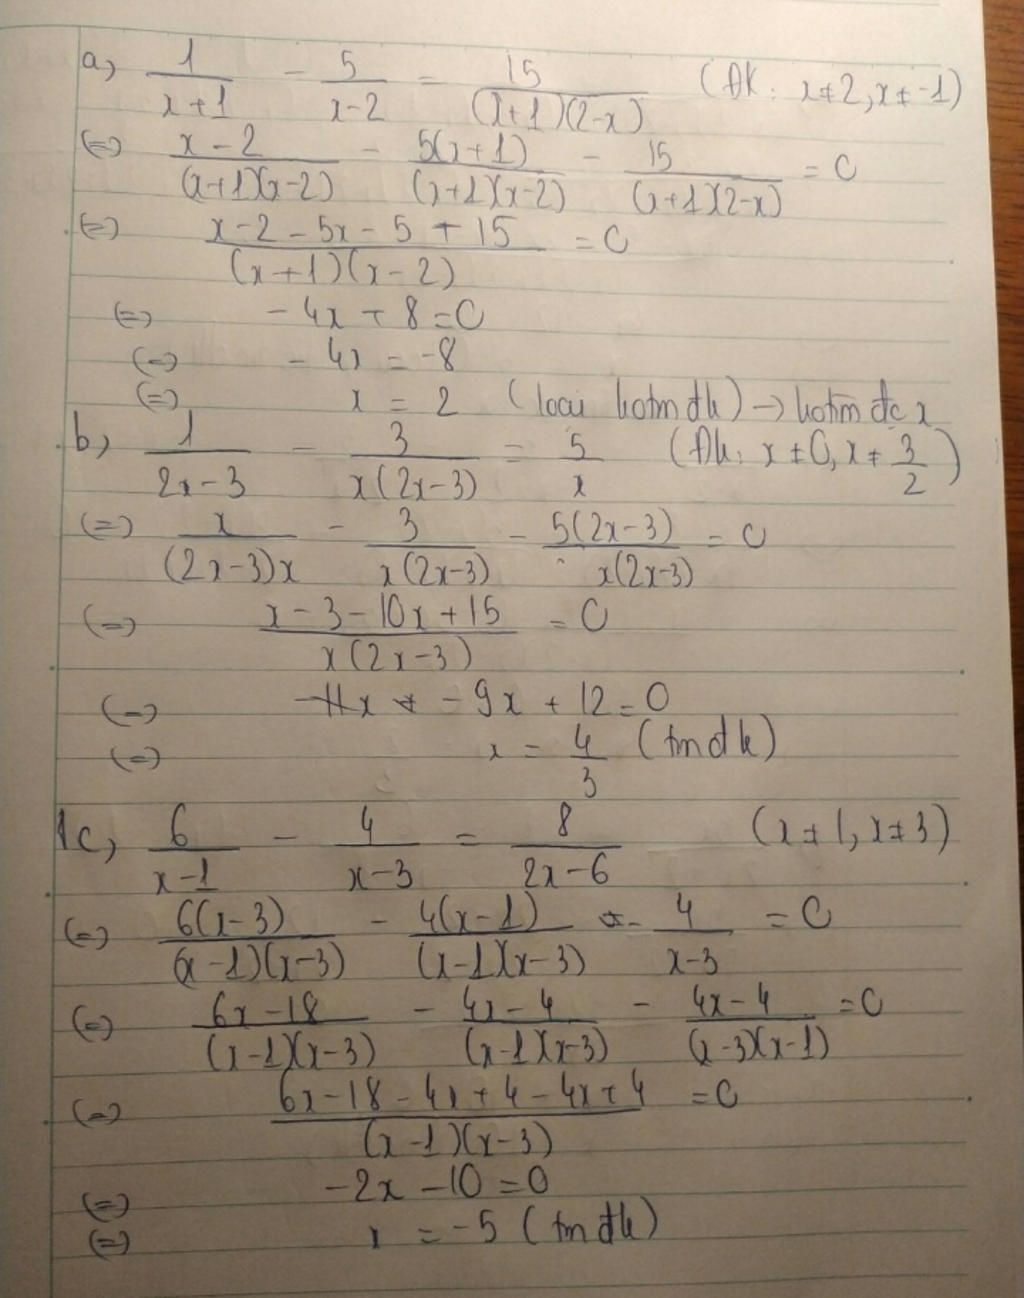 a) 1/(x+1) - 5/(x-2) = 15/((x+1)(2-x)) (ĐK: x≠2, x≠-1)
(=) (x-2)/((x+1)(x-2)) - 5(x+1)/((x+1)(x-2)) - 15/((x+1)(2-x)) = 0
(=) (x-2-5x-5+15)/((x+1)(x-2)) = 0
(=) -4x+8=0
(=) -4x = -8
(=) x = 2 (loại kotm đk) → kotìm đc x
b) 1/(2x-3) - 3/(x(2x-3)) = 5/x (ĐK: x≠0, x≠3/2)
(=) x/((2x-3)x) - 3/(x(2x-3)) - 5(2x-3)/(x(2x-3)) = 0
(=) (x-3-10x+15)/(x(2x-3)) = 0
(=) -9x+12=0
(=) x = 4/3 (tmđk)
1c) 6/(x-1) - 4/(x-3) = 8/(2x-6) (x≠1, x≠3)
(=) 6(x-3)/((x-1)(x-3)) - 4(x-1)/((x-1)(x-3)) - 4/(x-3) = 0
(=) (6x-18)/((x-1)(x-3)) - (4x-4)/((x-1)(x-3)) - (4x-4)/((x-3)(x-1)) = 0
(=) (6x-18-4x+4-4x+4)/((x-1)(x-3)) = 0
(=) -2x-10=0
(=) x = -5 (tmđk)